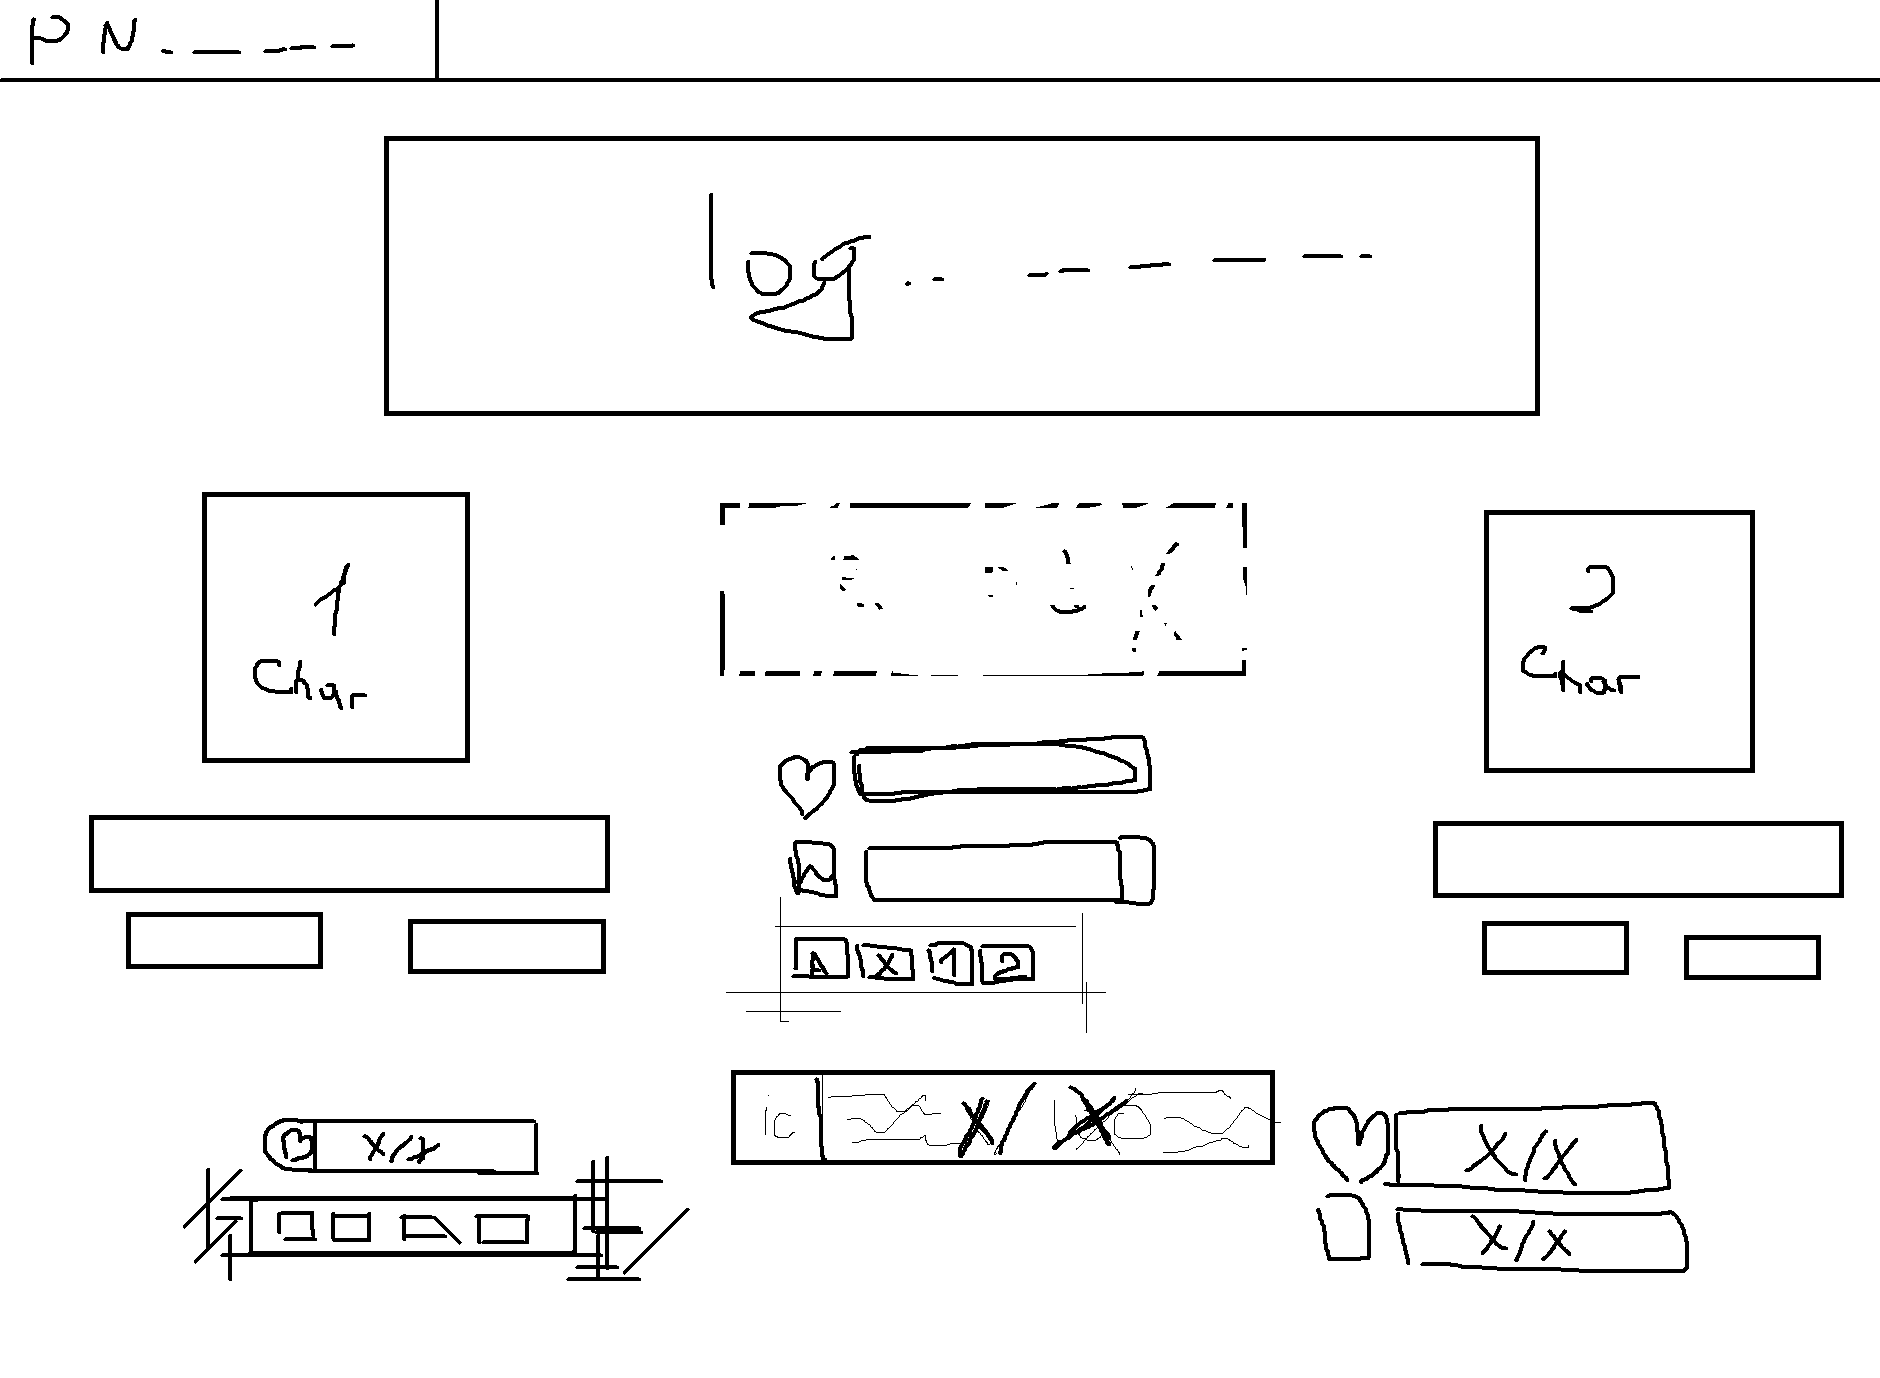 PN
log
1
Char
2
Char
A X 1 2
ic X/X
X/X
X/X
X/X